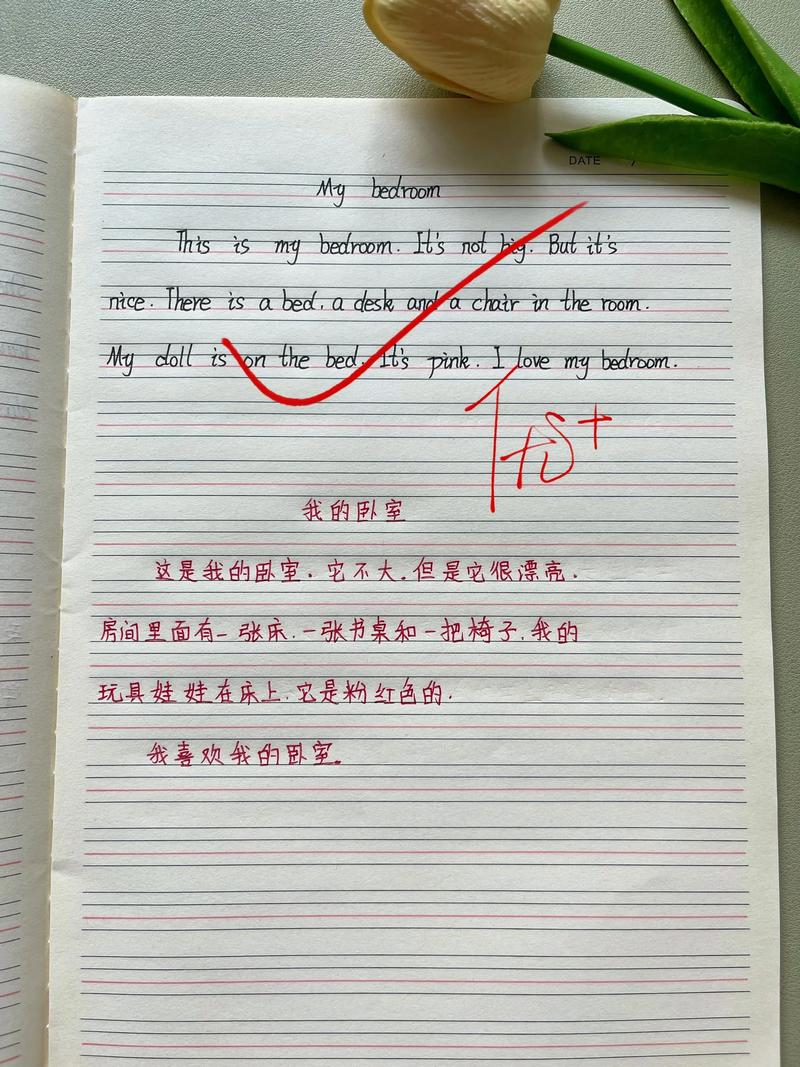 DATE
My bedroom
This is my bedroom. It's not big. But it's
nice. There is a bed, a desk and a chair in the room.
My doll is on the bed. It's pink. I love my bedroom.
我的卧室
这是我的卧室.它不大.但是它很漂亮.
房间里面有一张床.一张书桌和一把椅子.我的
玩具娃娃在床上.它是粉红色的.
我喜欢我的卧室。